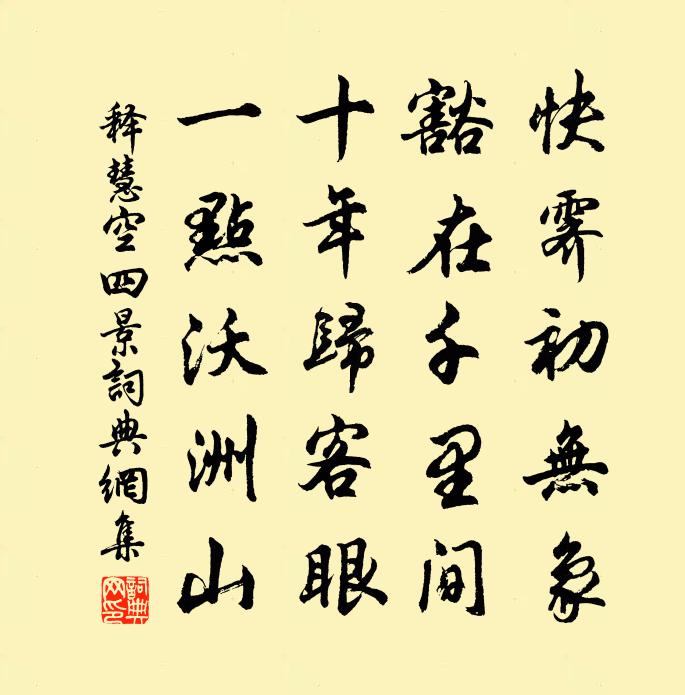 快霽初無象
豁在千里間
十年歸客眼
一點沃洲山
釋慧空四景詞典網集
詞典网印